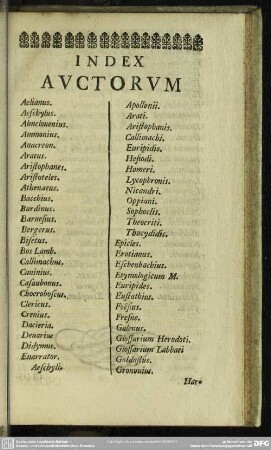 INDEX
AVCTORVM
Aelianus.
Aeschylus.
Ammonius.
Anacreon.
Aratus.
Aristophanes.
Aristoteles.
Athenaeus.
Bacchius.
Bardinus.
Barnesius.
Bergerus.
Bisetus.
Bos Lamb.
Callimachus.
Caninius.
Casaubonus.
Choeroboscus.
Clericus.
Crenius.
Dacieria.
Devarius
Didymus.
Enarrator.
Aeschyli
Apollonii.
Arati.
Aristophanis.
Callimachi.
Euripidis.
Hesiodi.
Homeri.
Lycophronis.
Nicandri.
Oppiani.
Sophoclis.
Theocriti.
Thucydidis.
Epicles.
Erotianus.
Eschenbachius.
Etymologicum M.
Euripides.
Eustathius.
Foësius.
Fresne.
Galenus.
Glossarium Herodoti.
Glossarium Labbaei
Goldastus.
Gronovius.
Har-